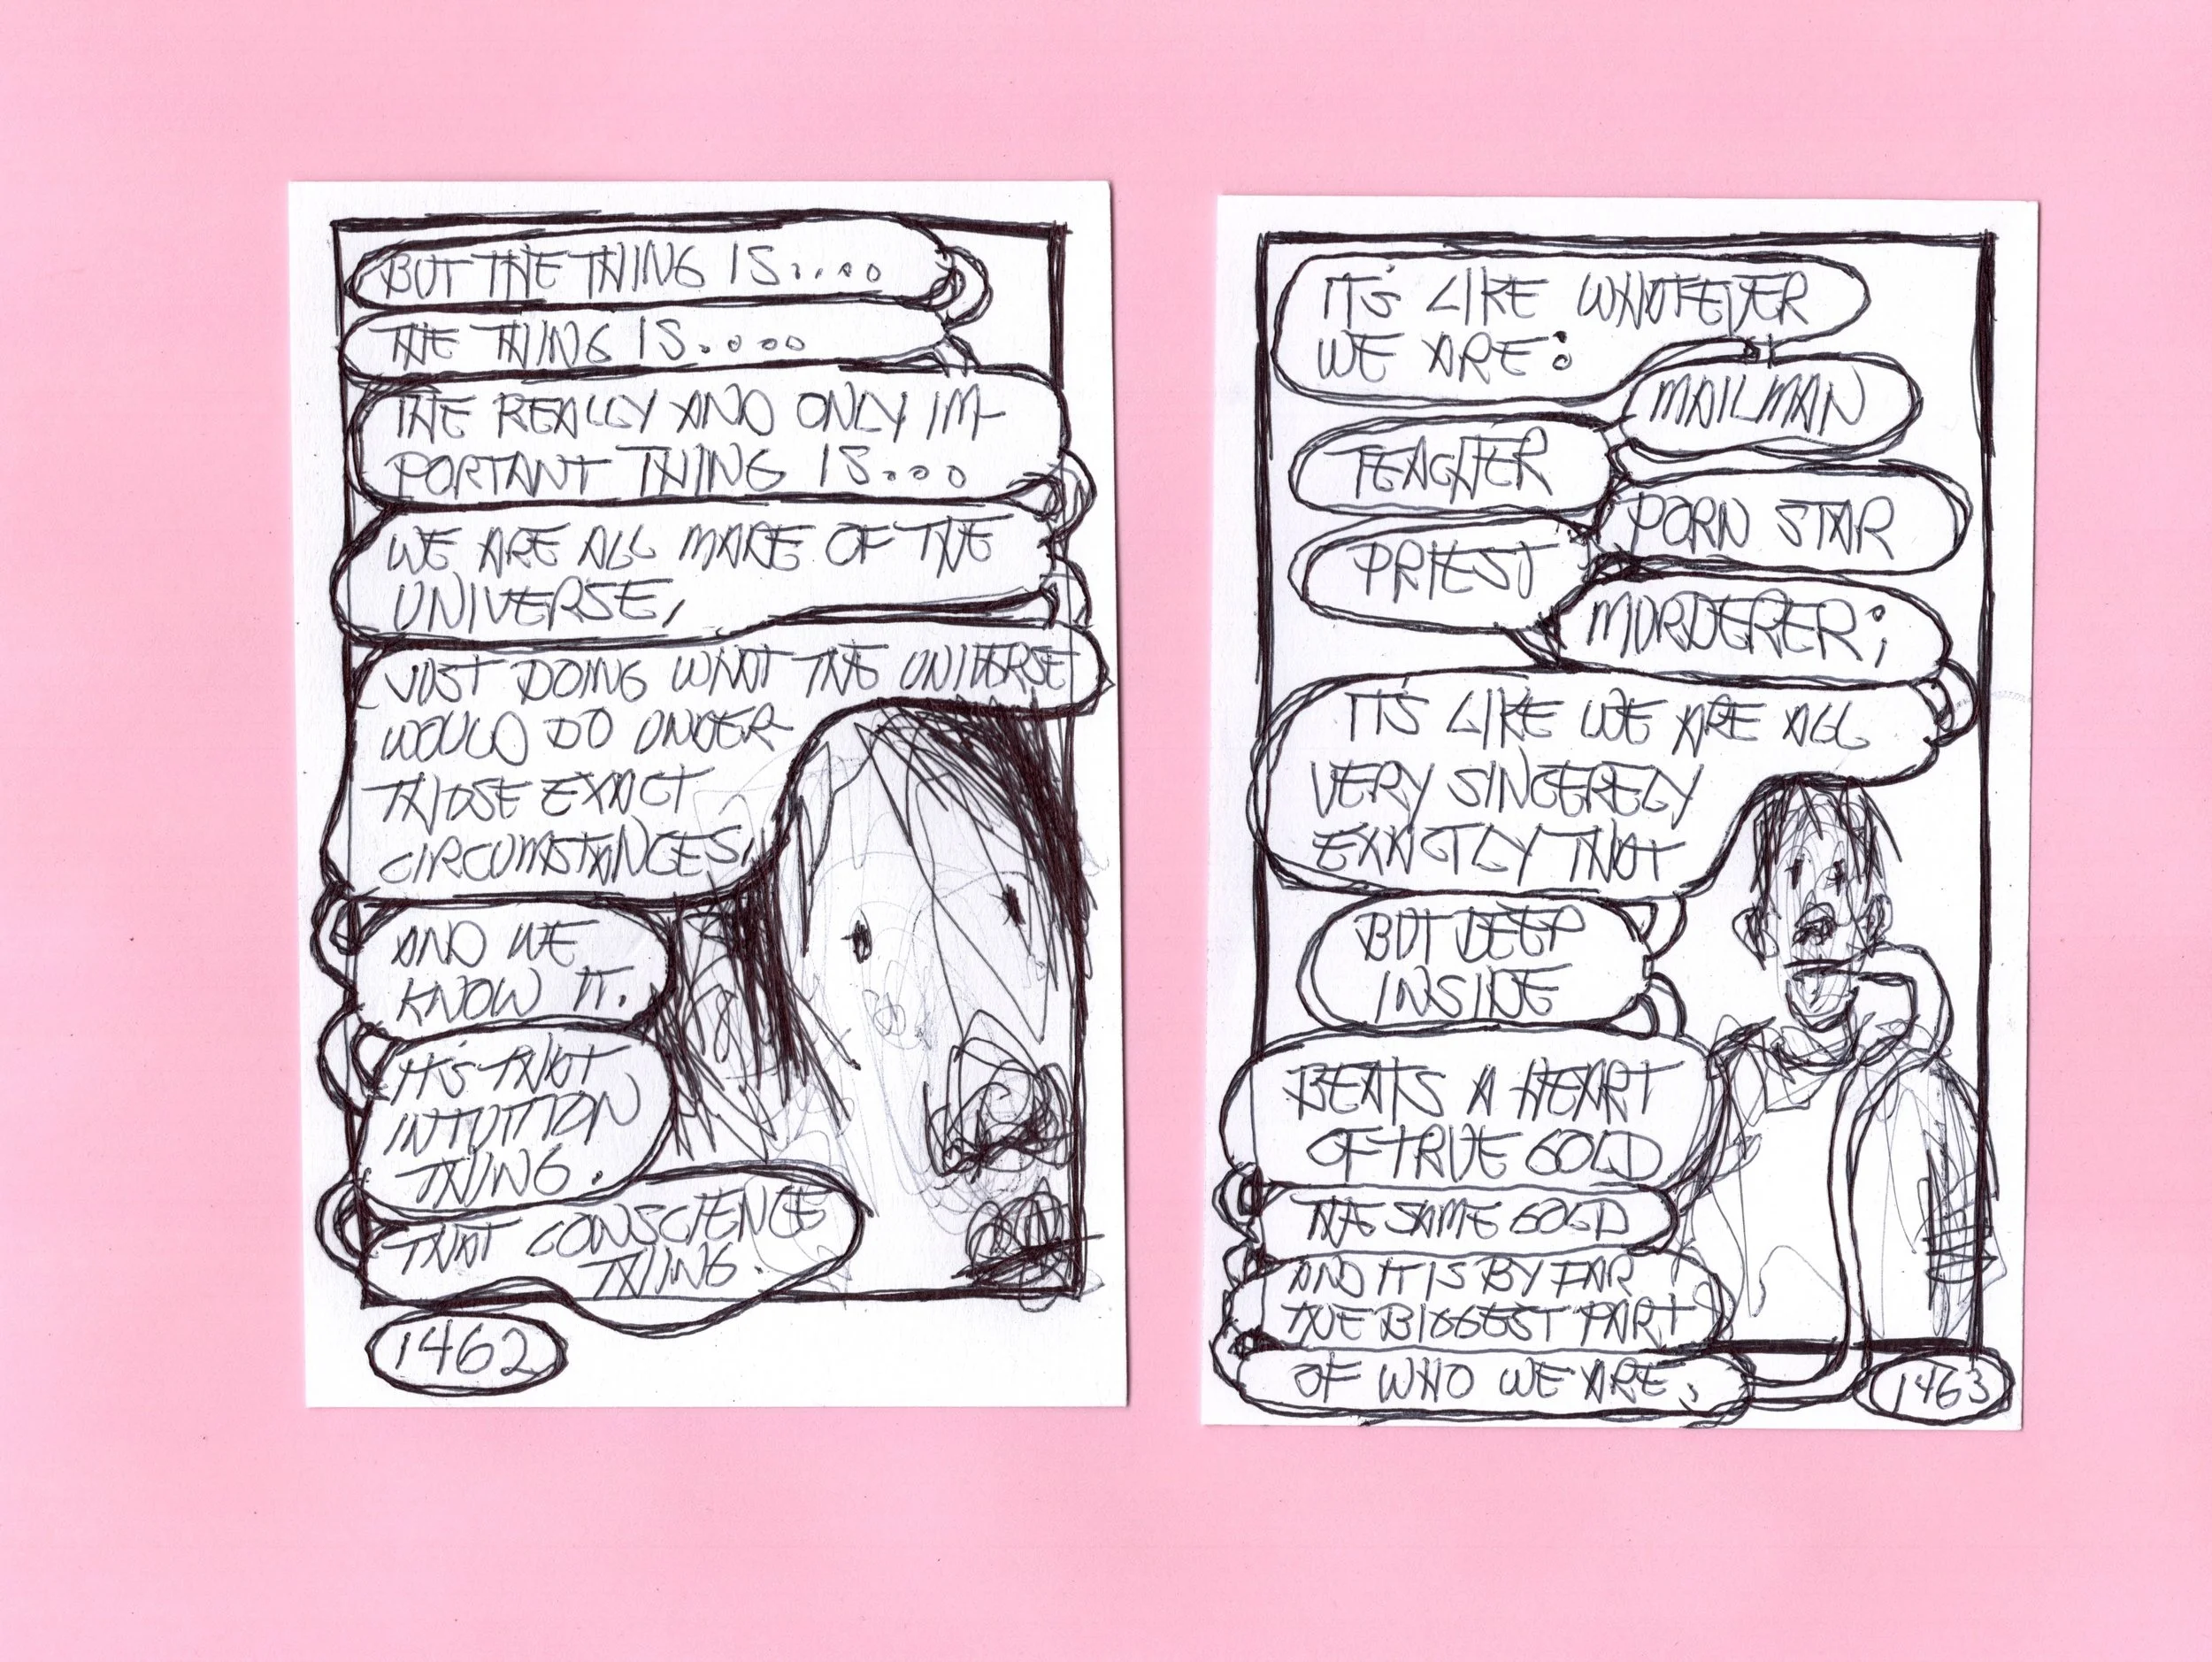 BUT THE THING IS....
THE THING IS....
THE REALLY AND ONLY IM-
PORTANT THING IS...
WE ARE ALL MADE OF THE
UNIVERSE,
JUST DOING WHAT THE UNIVERSE
WOULD DO UNDER
THOSE EXACT
CIRCUMSTANCES,
AND WE
KNOW IT.
IT'S THAT
INTUITION
THING.
THAT CONSCIENCE
THING.
1462
IT'S LIKE WHATEVER
WE ARE:
MAILMAN
TEACHER
PORN STAR
PRIEST
MURDERER;
IT'S LIKE WE ARE ALL
VERY SINCERELY
EXACTLY THAT
BUT DEEP
INSIDE
BEATS A HEART
OF TRUE GOLD
THE SAME GOLD
AND IT IS BY FAR
THE BIGGEST PART
OF WHO WE ARE,
1463